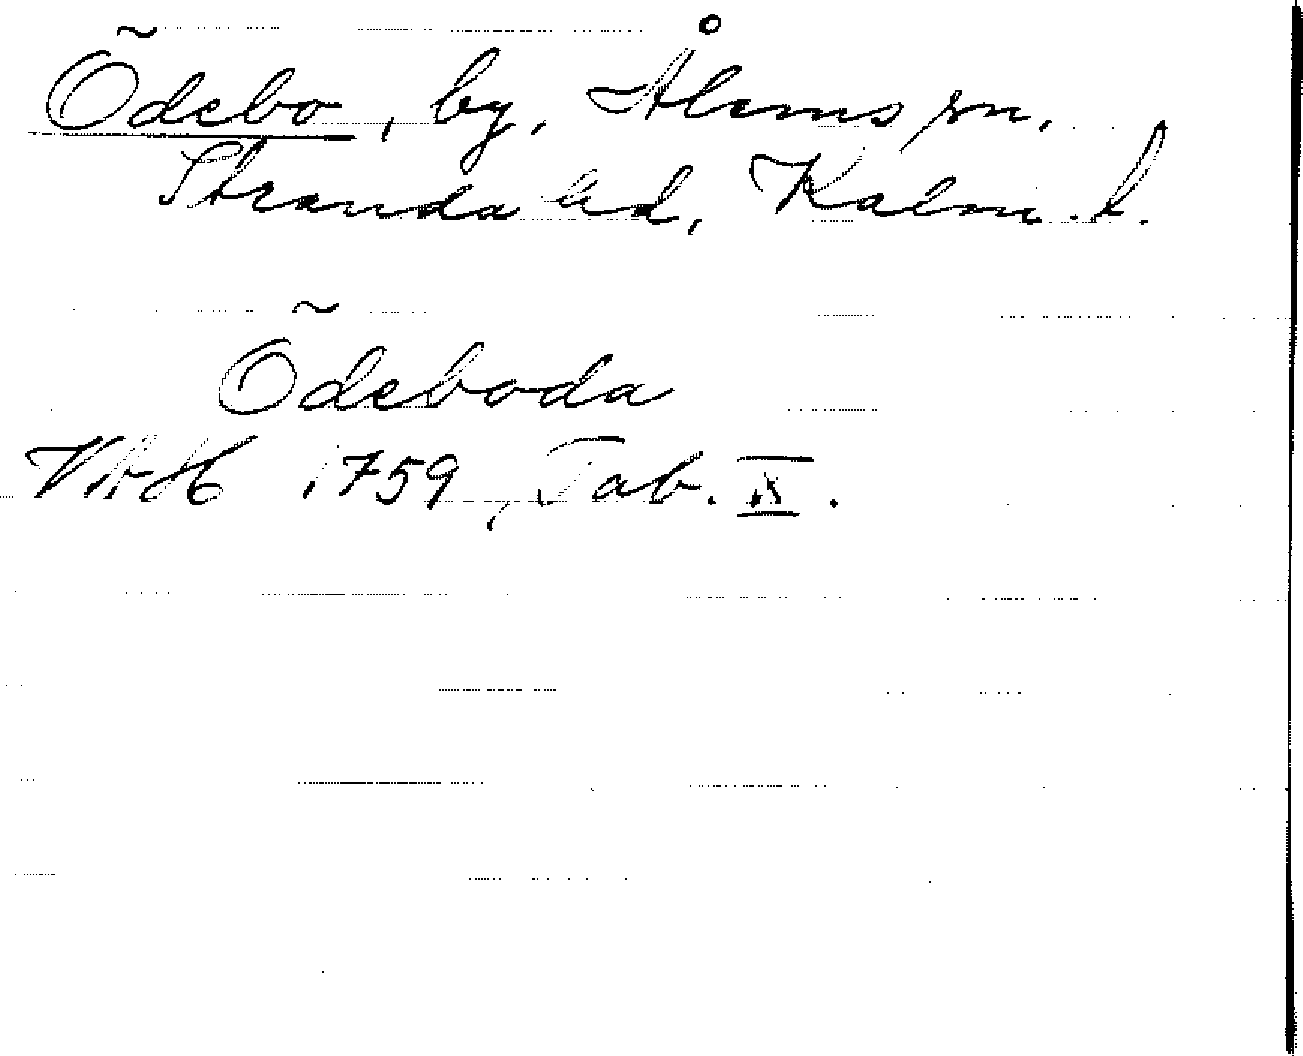 Ödebo, by, Ålems sn,
Stranda hd, Kalm. l.
Ödeboda
VAH 1759, Tab. IX.